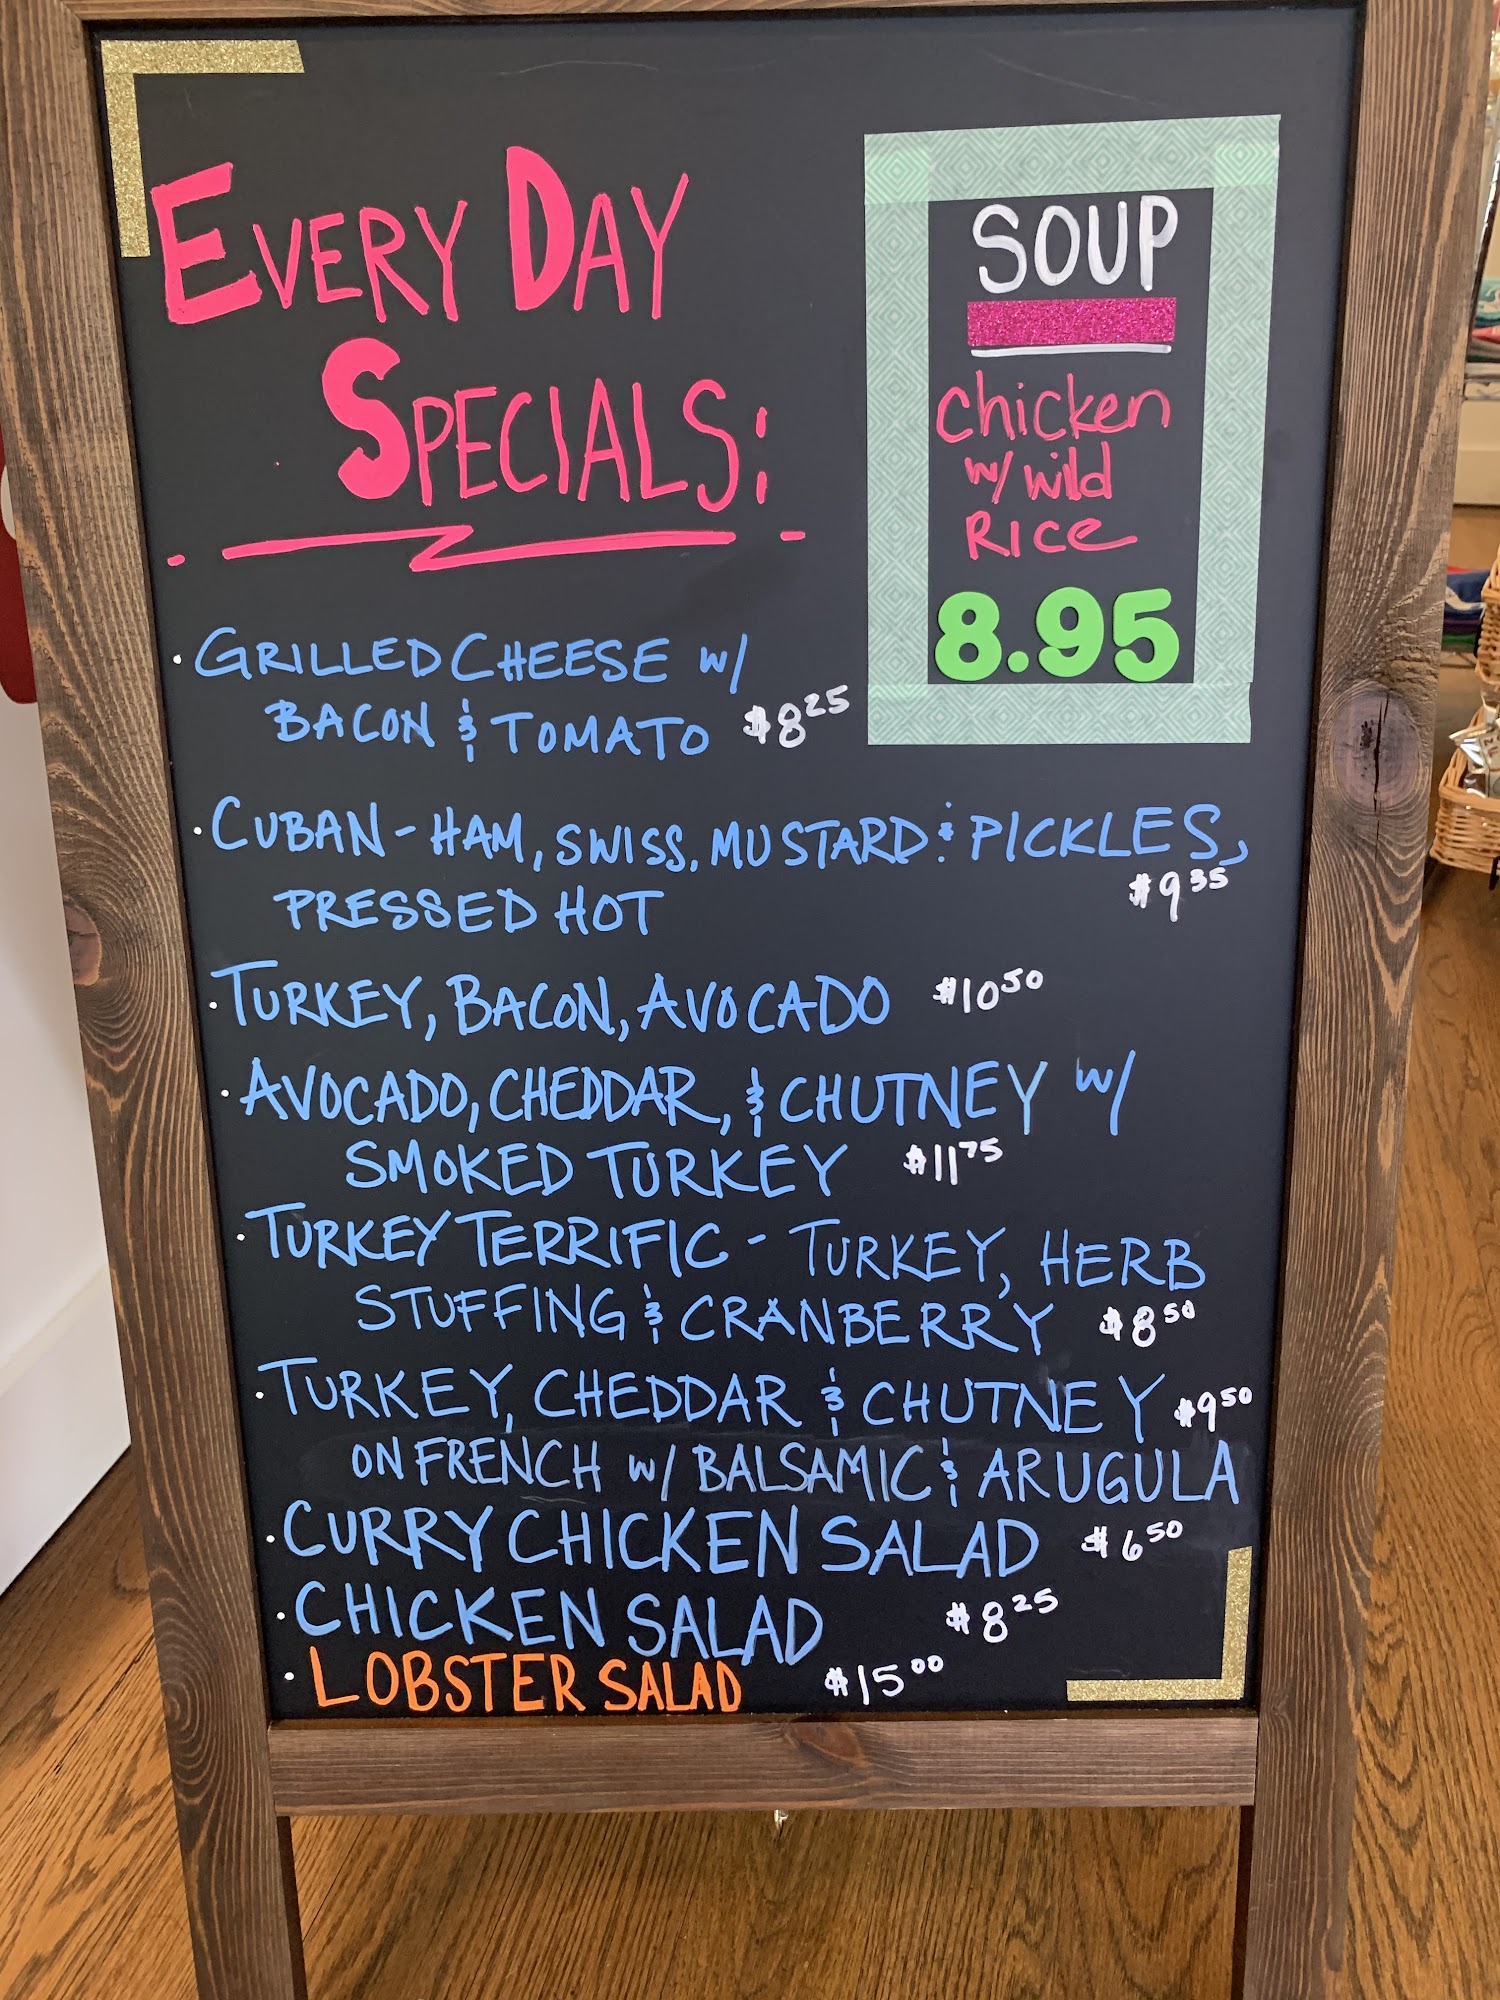 EVERY DAY
SPECIALS:
SOUP
Chicken
w/ wild
Rice
8.95
· GRILLED CHEESE w/
BACON & TOMATO $8 25
· CUBAN - HAM, SWISS, MUSTARD & PICKLES,
PRESSED HOT $9 35
· TURKEY, BACON, AVOCADO $10 50
· AVOCADO, CHEDDAR, & CHUTNEY w/
SMOKED TURKEY $11 75
· TURKEY TERRIFIC - TURKEY, HERB
STUFFING & CRANBERRY $8 50
· TURKEY, CHEDDAR & CHUTNEY $9 50
ON FRENCH w/ BALSAMIC & ARUGULA
· CURRY CHICKEN SALAD $6 50
· CHICKEN SALAD $8 25
· LOBSTER SALAD $15 00